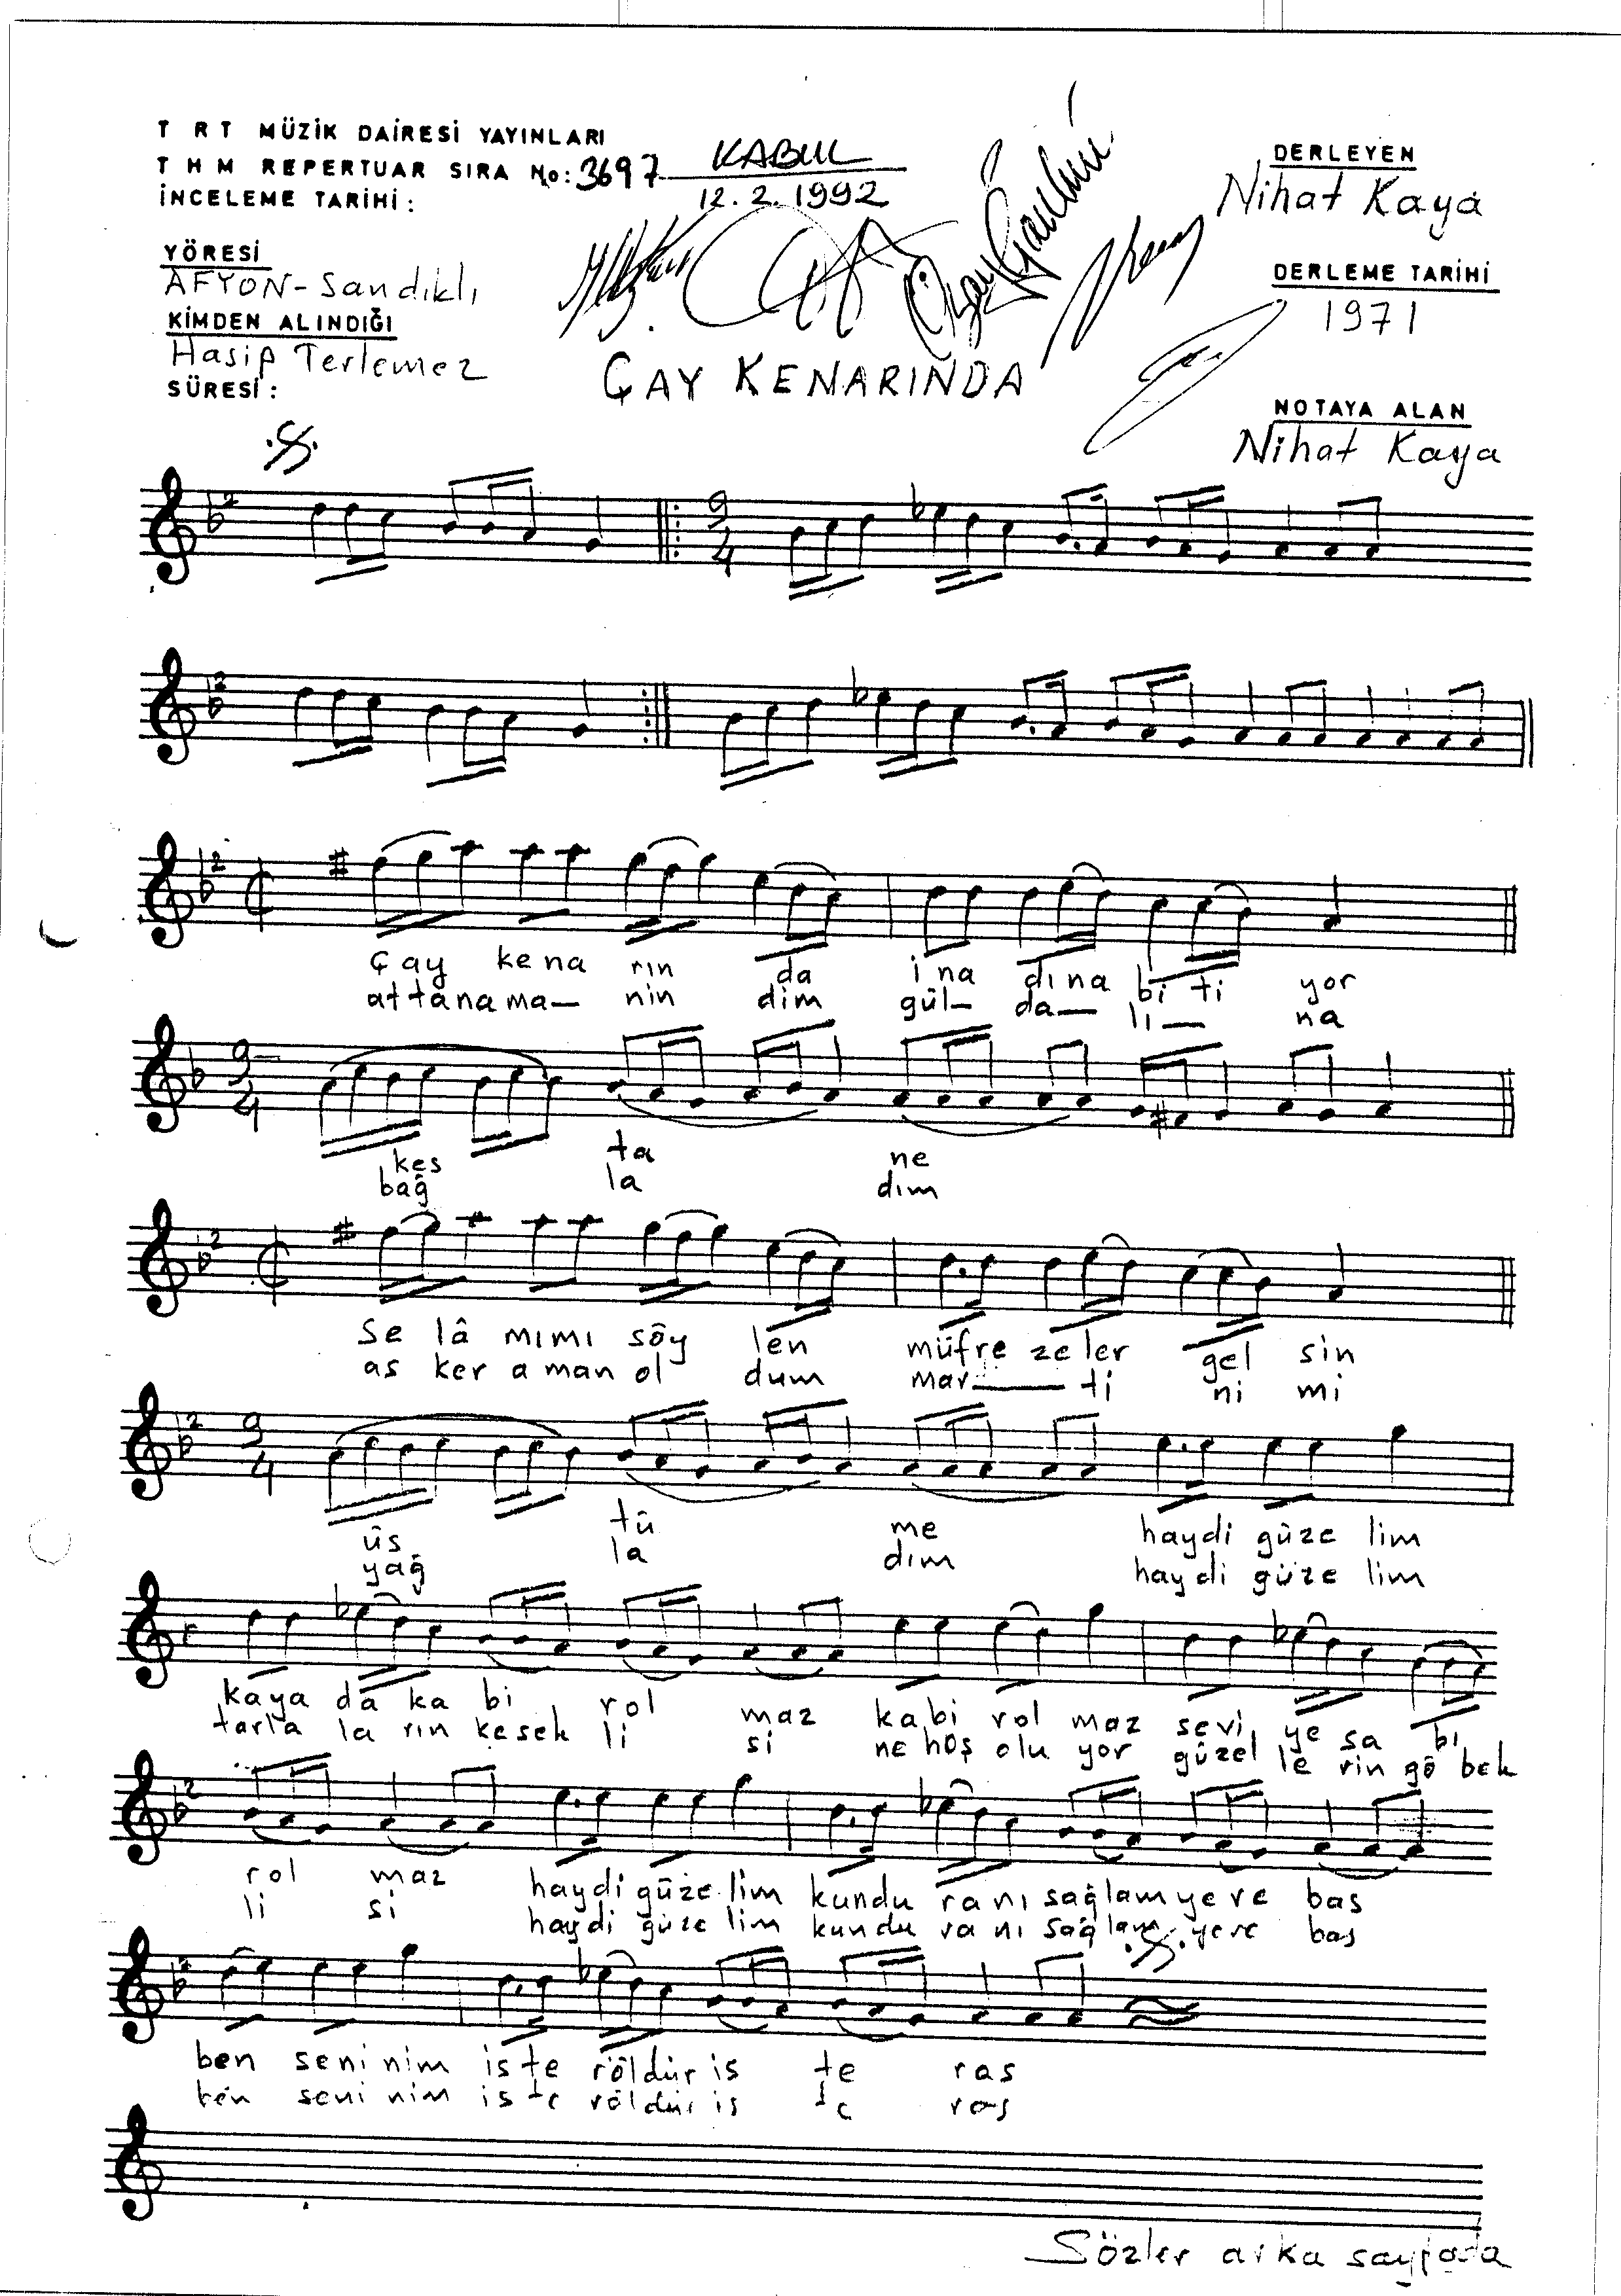 T R T MÜZİK DAİRESİ YAYINLARI
T H M REPERTUAR SIRA No: 3697
İNCELEME TARİHİ :
KABUL
12.2.1992
YÖRESİ
AFYON-Sandıklı
KİMDEN ALINDIĞI
Hasip Terlemez
SÜRESİ :
DERLEYEN
Nihat Kaya
DERLEME TARİHİ
1971
NOTAYA ALAN
Nihat Kaya
ÇAY KENARINDA
9
4
Çay kena rın da ina dına bi ti yor
attanama— nin dim gül— da— lı— na
9
4
kes ta ne
bağ la dım
se lâ mımı söy len müfre zeler gel sin
as ker a man ol dum mar— ti ni mi
9
4
üs tü me haydi güze lim
yağ la dım haydi güze lim
kaya da ka bi rol maz kabi rol maz sevi ye sa bı
tarla la rın kesek li si ne hoş olu yor güzel le rin gö bek
rol maz haydi güze lim kundu ra nı sağlam yere bas
li si haydi güze lim kundu ra nı sağlam yere bas
ben seni nim is te röldür is te ras
ben seni nim is te röldür is te ras
Sözler arka sayfada